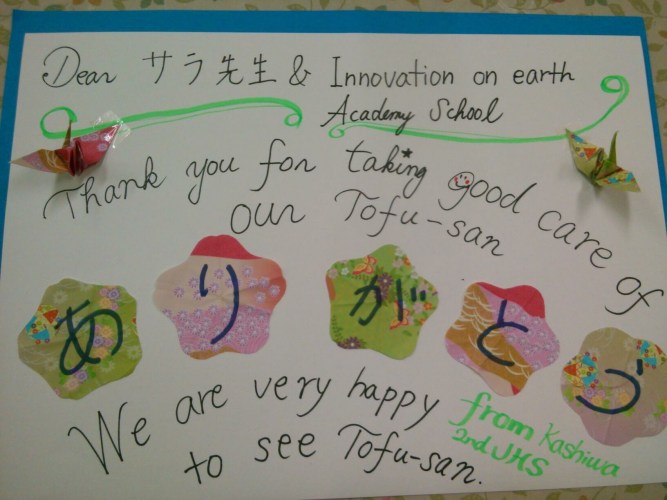 Dear サラ先生 & Innovation on earth
Academy School
Thank you for taking good care of
our Tofu-san
ありがとう
We are very happy
to see Tofu-san.
from Kashiwa
2nd JHS